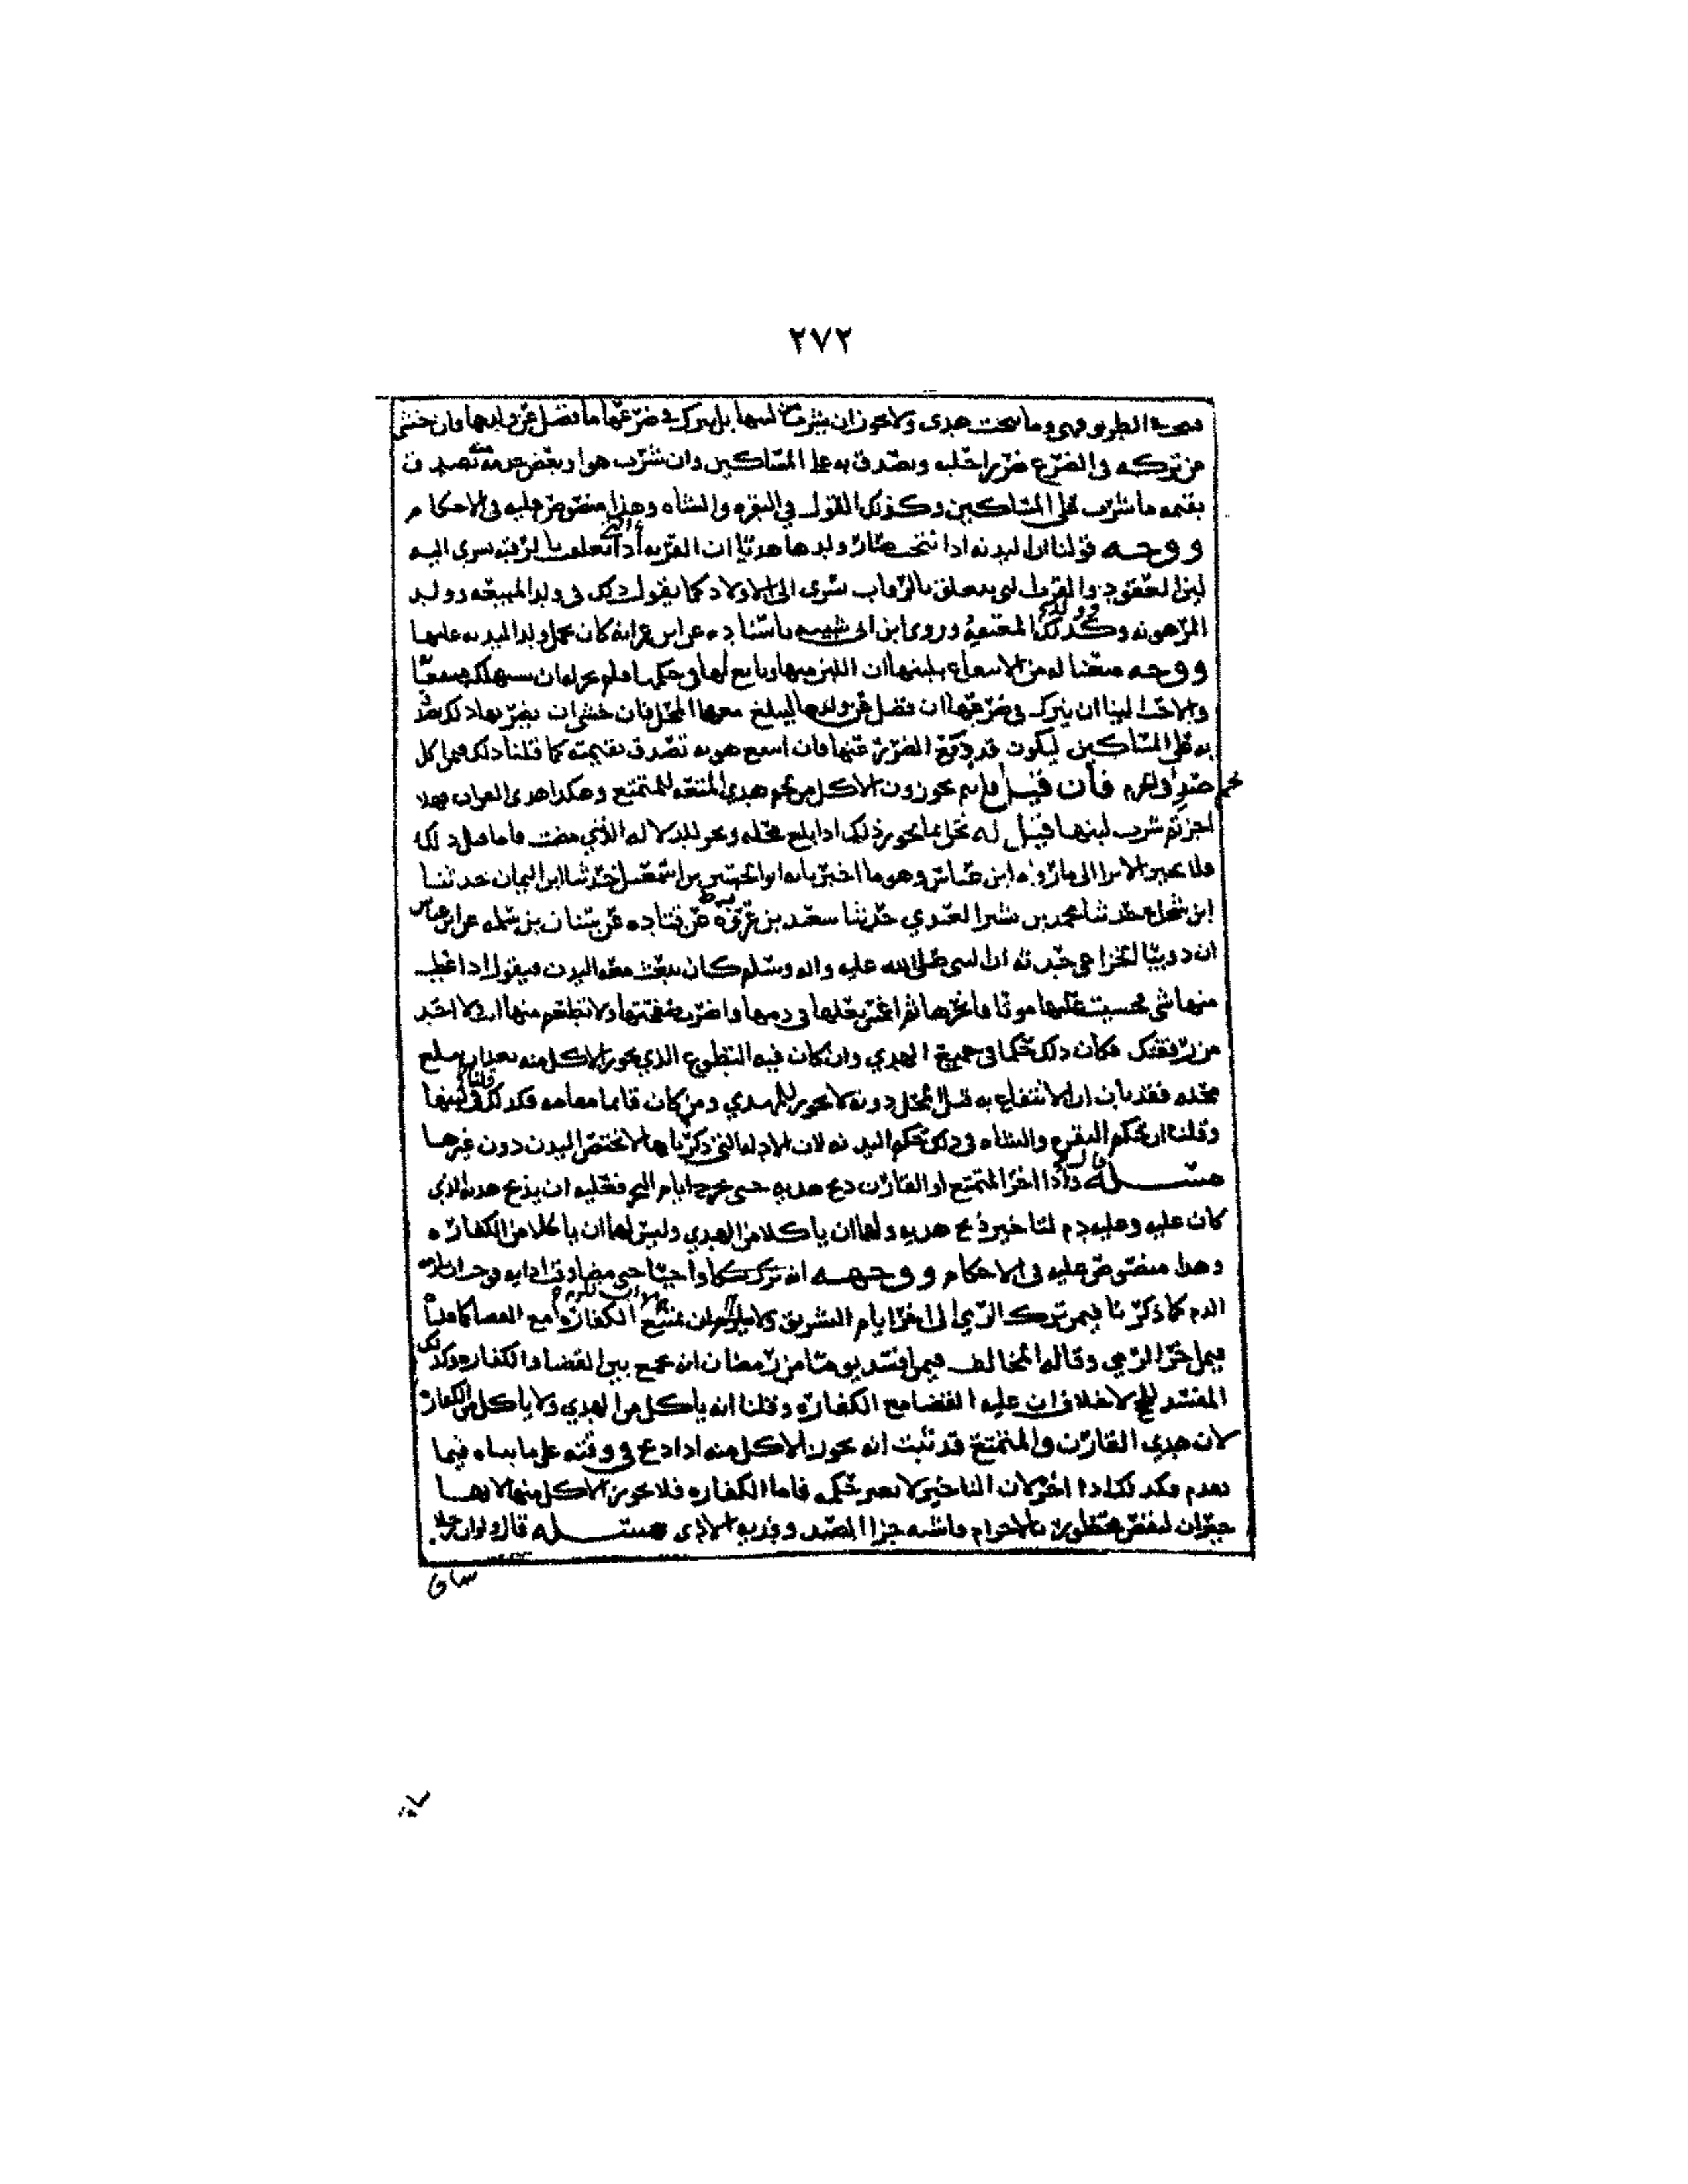 ٢٧٢
فنتجت في الطريق فهي وما نتجت هدي ولا يجوز ان يشرب من لبنها بل يترك في ضرعها ما فضل عن ولدها فان خشي
من تركه في الضرع ضررا حلبه وتصدق به على المساكين وان شرب هو او بعض خدمه منه تصدق
بقيمة ما شرب على المساكين وكذلك القول في البقرة والشاة وهذا منصوص عليه في الاحكام
ووجه قولنا ان البدنة اذا نتجت صار ولدها هديا ان القربة اذا تعلقت بالرقبة سرى اليه
لان العقود والقرب التي تتعلق بالرقاب تسري الى الاولاد كما يقول ذلك في ولد المبيعة وولد
المرهونة وكذلك ولد المعتقة وروى ابن ابي شيبة باسناده عن ابن عمر انه كان يحمل ولد البدنة عليها
ووجه منعنا له من الانتفاع بلبنها ان اللبن منها وتابع لها في حكمها فلم يجز له ان يستهلكه
والاختيار لبنها ان يترك في ضرعها ان فضل عن ولدها ليبلغ معها المحل فان خشي ان يضر بها ذلك تصدق
به على المساكين ليكون قد دفع الضرر عنها فان انتفع هو به تصدق بقيمته كما قلنا ذلك فيمن اكل
لحم صيد في الحرم فان قيل فانتم تجوزون الاكل من لحم هدي المتعة للمتمتع وهكذا هدي القران فهلا
اجزتم شرب لبنها قيل له نحن انما نجوز ذلك اذا بلغ محله ونحر للدلالة الذي مضت فاما قبل ذلك
فلا يجوز الا ترى الى ما رواه ابن عباس وهو ما اخبرنا به ابو الحسين بن اسمعيل حدثنا ابن اليمان حدثنا
ابن شجاع حدثنا محمد بن بشر العبدي حدثنا سعيد بن عروبة عن قتادة عن سنان بن سلمة عن ابن عباس
ان ذويبا الخزاعي حدثه ان النبي صلى الله عليه واله وسلم كان يبعث معه البدن فيقول اذا عطب
منها شي فخشيت عليها موتا فانحرها ثم اغمس نعلها في دمها واضرب صفحتها ولا تطعم منها انت ولا احد
من رفقتك فكان ذلك حكما في جميع الهدي وان كان فيه التطوع الذي يجوز الاكل منه بعد ان يبلغ
محله فقد بان ان الانتفاع به قبل المحل دونه لا يجوز للمهدي ومن كان قائما مقامه فكذلك قلنا في لبنها
وقلنا ان حكم البقرة والشاة في ذلك حكم البدنة لان الادلة التي ذكرناها لا تختص البدن دون غيرها
مسئلة قال واذا اخر المتمتع او القارن ذبح هديه حتى تخرج ايام النحر فعليه ان يذبح هديه الذي
كان عليه وعليه دم لتاخير ذبح هديه ولهما ان ياكلا من الهدي وليس لهما ان ياكلا من الكفارة
وهذا منصوص عليه في الاحكام ووجهه انه ترك نسكا واجبا حتى مضا وقت ادائه فوجب ان يلزمه
الدم كما ذكرنا فيمن ترك الرمي الى اخر ايام التشريق ولا يمتنع ان تلزم الكفارة مع القضا كما قلنا
فيمن اخر الرمي وقال المخالف فيمن افسد يوما من رمضان انه يجمع بين القضا والكفارة وكذلك
المفسد للحج لا خلاف ان عليه القضا مع الكفارة وقلنا انه ياكل من الهدي ولا ياكل من الكفارة
لان هدي القارن والمتمتع قد ثبت انه يجوز الاكل منه اذا ذبح في وقته على ما بيناه فيما
تقدم فكذلك اذا اخر لان التاخير لا يغير حكمه فاما الكفارة فلا يجوز الاكل منها لانها
جبران لنقص محظورة بالاحرام فاشبه جزا الصيد وفدية الاذى مسئلة قال ولو ان رجلا
ساق